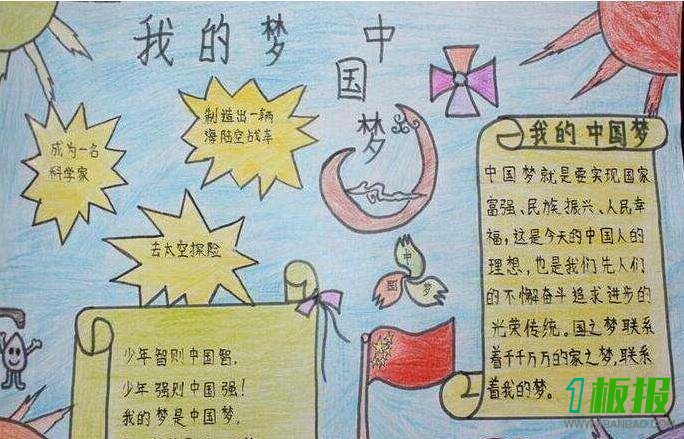 我的梦
中国梦
成为一名
科学家
制造出一辆
海陆空战车
去太空探险
中
国
梦
少年智则中国智,
少年强则中国强!
我的梦是中国梦,
我的中国梦
中国梦就是要实现国家
富强、民族振兴、人民幸
福,这是今天的中国人的
理想,也是我们先人们
的不懈奋斗追求进步的
光荣传统。国之梦联系
着千千万万的家之梦,联系
着我的梦。
1板报
1BANBAO.COM